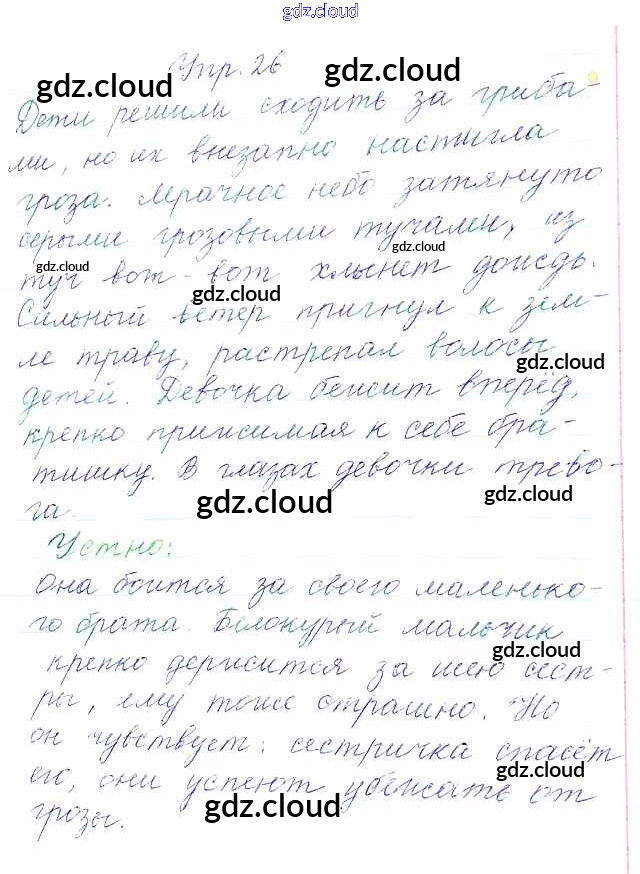 gdz.cloud
Упр. 26
gdz.cloud
gdz.cloud
Дети решили сходить за гриба-
ми, но их внезапно настигла
гроза. Мрачное небо затянуто
серыми грозовыми тучами, из
gdz.cloud
gdz.cloud
туч вот-вот хлынет дождь.
gdz.cloud
Сильный ветер пригнул к зем-
ле траву, растрепал волосы
gdz.cloud
детей. Девочка бежит вперёд,
крепко прижимая к себе бра-
тишку. В глазах девочки трево-
gdz.cloud
gdz.cloud
га.
Устно:
Она боится за своего маленько-
го брата. Белокурый мальчик
gdz.cloud
крепко держится за шею сест-
ры, ему тоже страшно. Но
он чувствует: сестричка спасёт
gdz.cloud
его, они успеют убежать от
gdz.cloud
грозы.